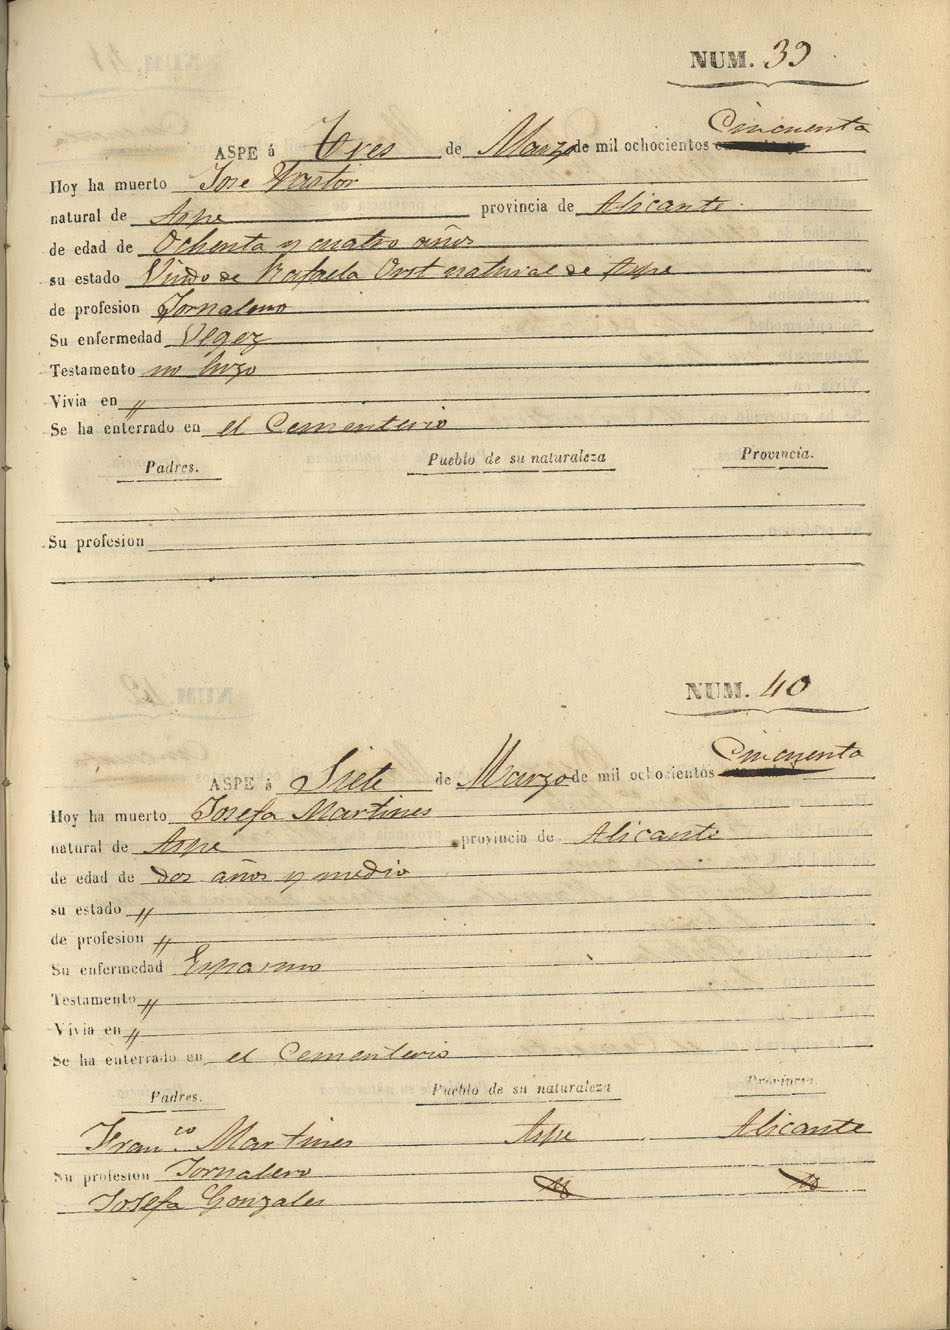 NUM. 39
Cincuenta
ASPE á Tres de Marzo de mil ochocientos
Hoy ha muerto Jose Pastor
natural de Aspe provincia de Alicante
de edad de Ochenta y cuatro años
su estado Viudo de Rafaela natural de Aspe
de profesion Jornalero
Su enfermedad Vegez
Testamento no hizo
Vivia en "
Se ha enterrado en el Cementerio
Padres. Pueblo de su naturaleza Provincia.
Su profesion
NUM. 40
Cincuenta
ASPE á Siete de Marzo de mil ochocientos
Hoy ha muerto Josefa Martines
natural de Aspe provincia de Alicante
de edad de dos años y medio
su estado "
de profesion "
Su enfermedad Espasmo
Testamento "
Vivia en "
Se ha enterrado en el Cementerio
Padres. Pueblo de su naturaleza Provincia.
Fran.co Martines Aspe Alicante
Su profesion Jornalero
Josefa Gonzales